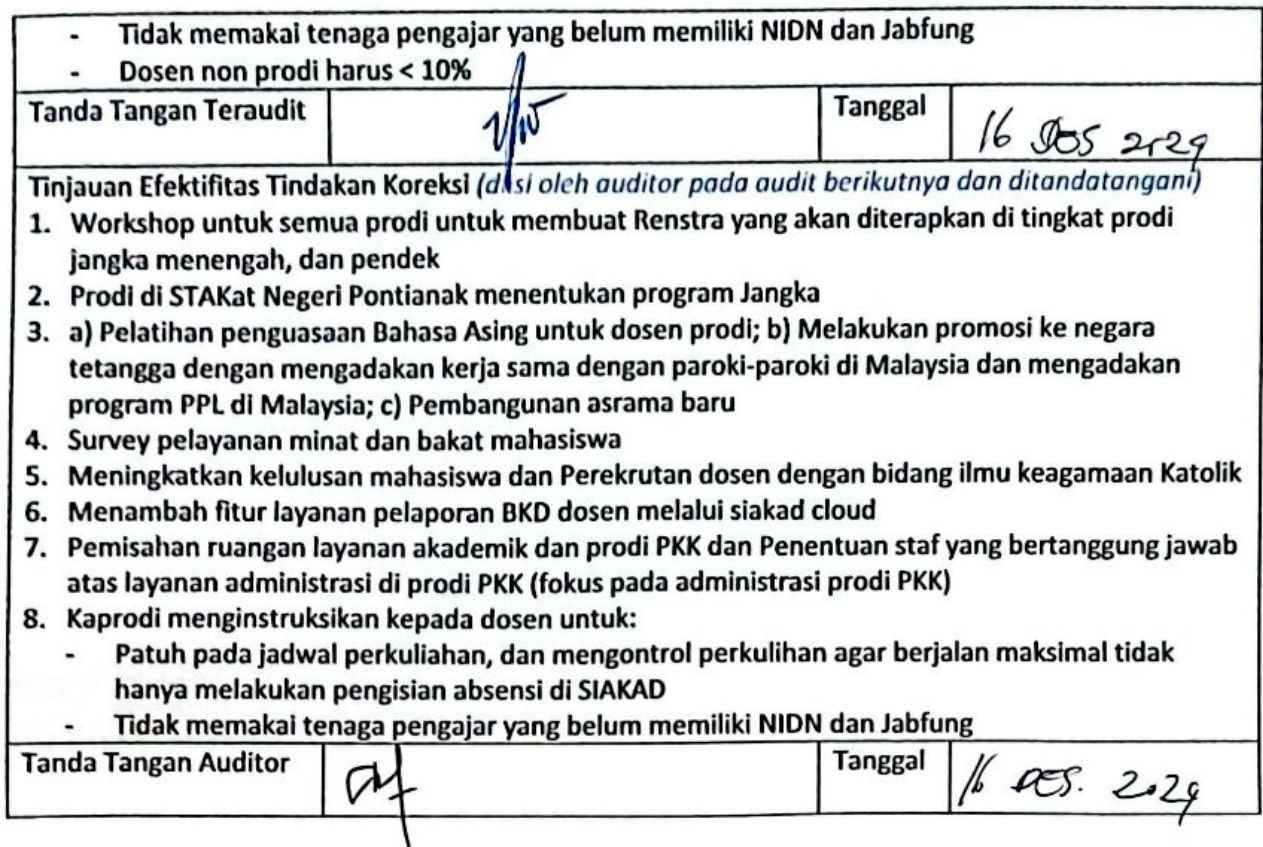 - Tidak memakai tenaga pengajar yang belum memiliki NIDN dan Jabfung
- Dosen non prodi harus < 10%
Tanda Tangan Teraudit Tanggal 16 DES 2024
Tinjauan Efektifitas Tindakan Koreksi (diisi oleh auditor pada audit berikutnya dan ditandatangani)
1. Workshop untuk semua prodi untuk membuat Renstra yang akan diterapkan di tingkat prodi
jangka menengah, dan pendek
2. Prodi di STAKat Negeri Pontianak menentukan program Jangka
3. a) Pelatihan penguasaan Bahasa Asing untuk dosen prodi; b) Melakukan promosi ke negara
tetangga dengan mengadakan kerja sama dengan paroki-paroki di Malaysia dan mengadakan
program PPL di Malaysia; c) Pembangunan asrama baru
4. Survey pelayanan minat dan bakat mahasiswa
5. Meningkatkan kelulusan mahasiswa dan Perekrutan dosen dengan bidang ilmu keagamaan Katolik
6. Menambah fitur layanan pelaporan BKD dosen melalui siakad cloud
7. Pemisahan ruangan layanan akademik dan prodi PKK dan Penentuan staf yang bertanggung jawab
atas layanan administrasi di prodi PKK (fokus pada administrasi prodi PKK)
8. Kaprodi menginstruksikan kepada dosen untuk:
- Patuh pada jadwal perkuliahan, dan mengontrol perkulihan agar berjalan maksimal tidak
hanya melakukan pengisian absensi di SIAKAD
- Tidak memakai tenaga pengajar yang belum memiliki NIDN dan Jabfung
Tanda Tangan Auditor Tanggal 16 DES. 2024